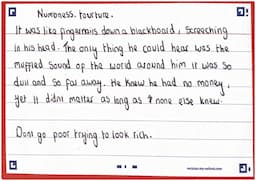 Numbness. Tourture.
It was like fingernails down a blackboard, screeching
in his head. The only thing he could hear was the
muffled sound of the world around him it was so
dull and so far away. He knew he had no money,
yet it didnt matter as long as & none else knew.
Dont go poor trying to look rich.